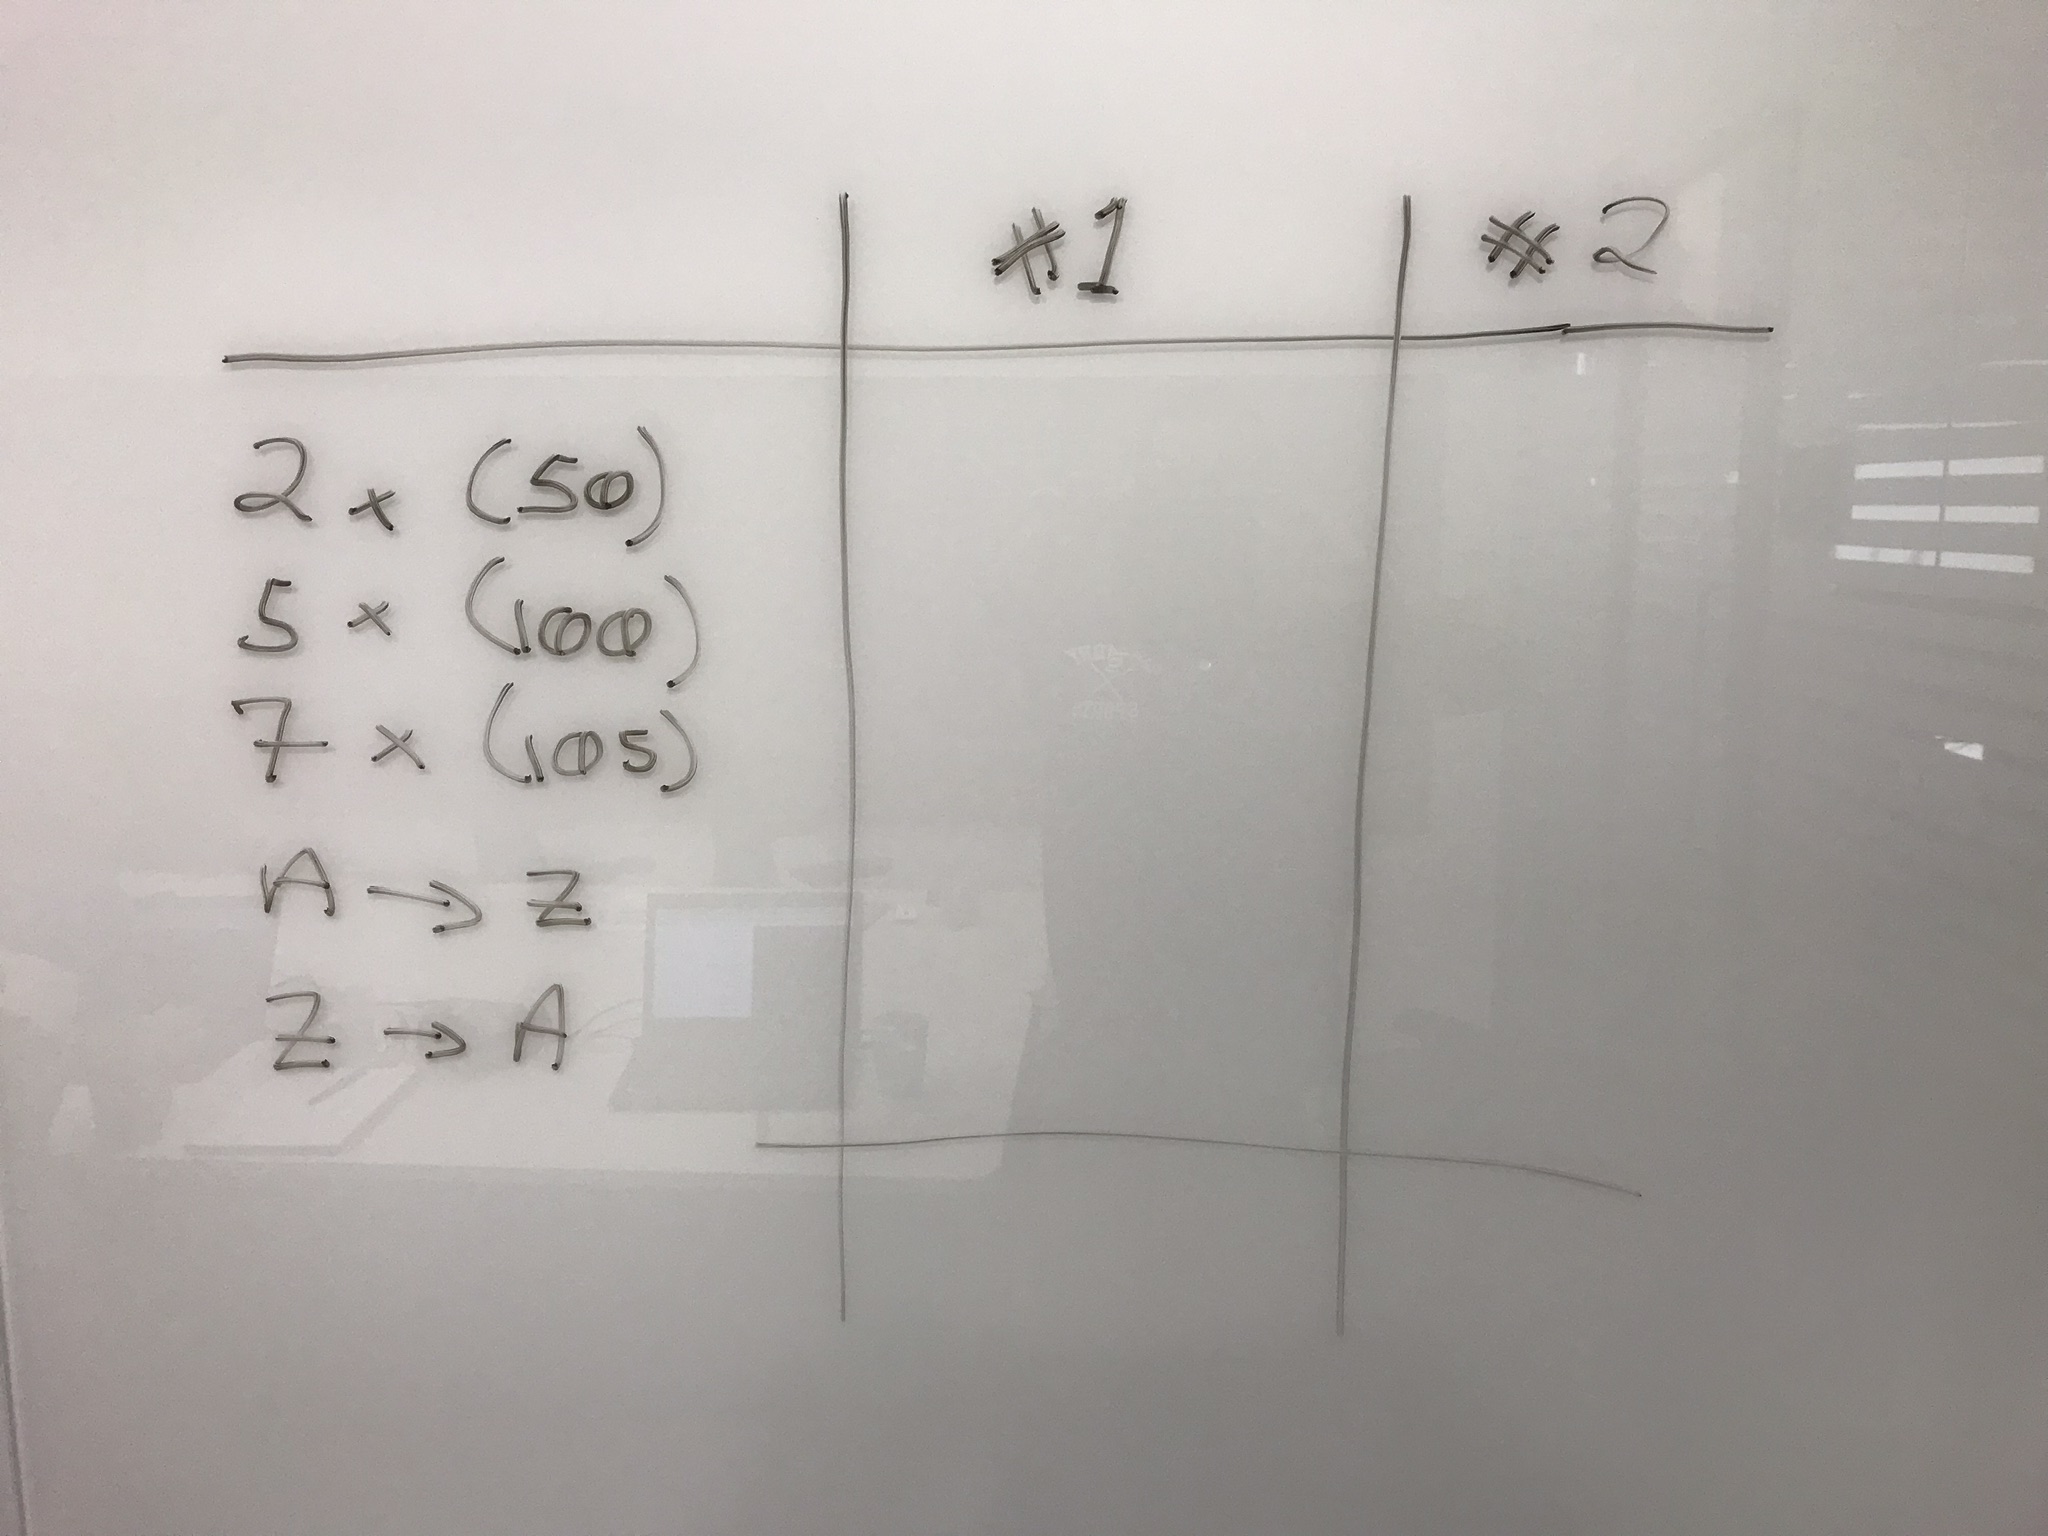 #1 #2
2 x (50)
5 x (100)
7 x (105)
A → Z
Z → A